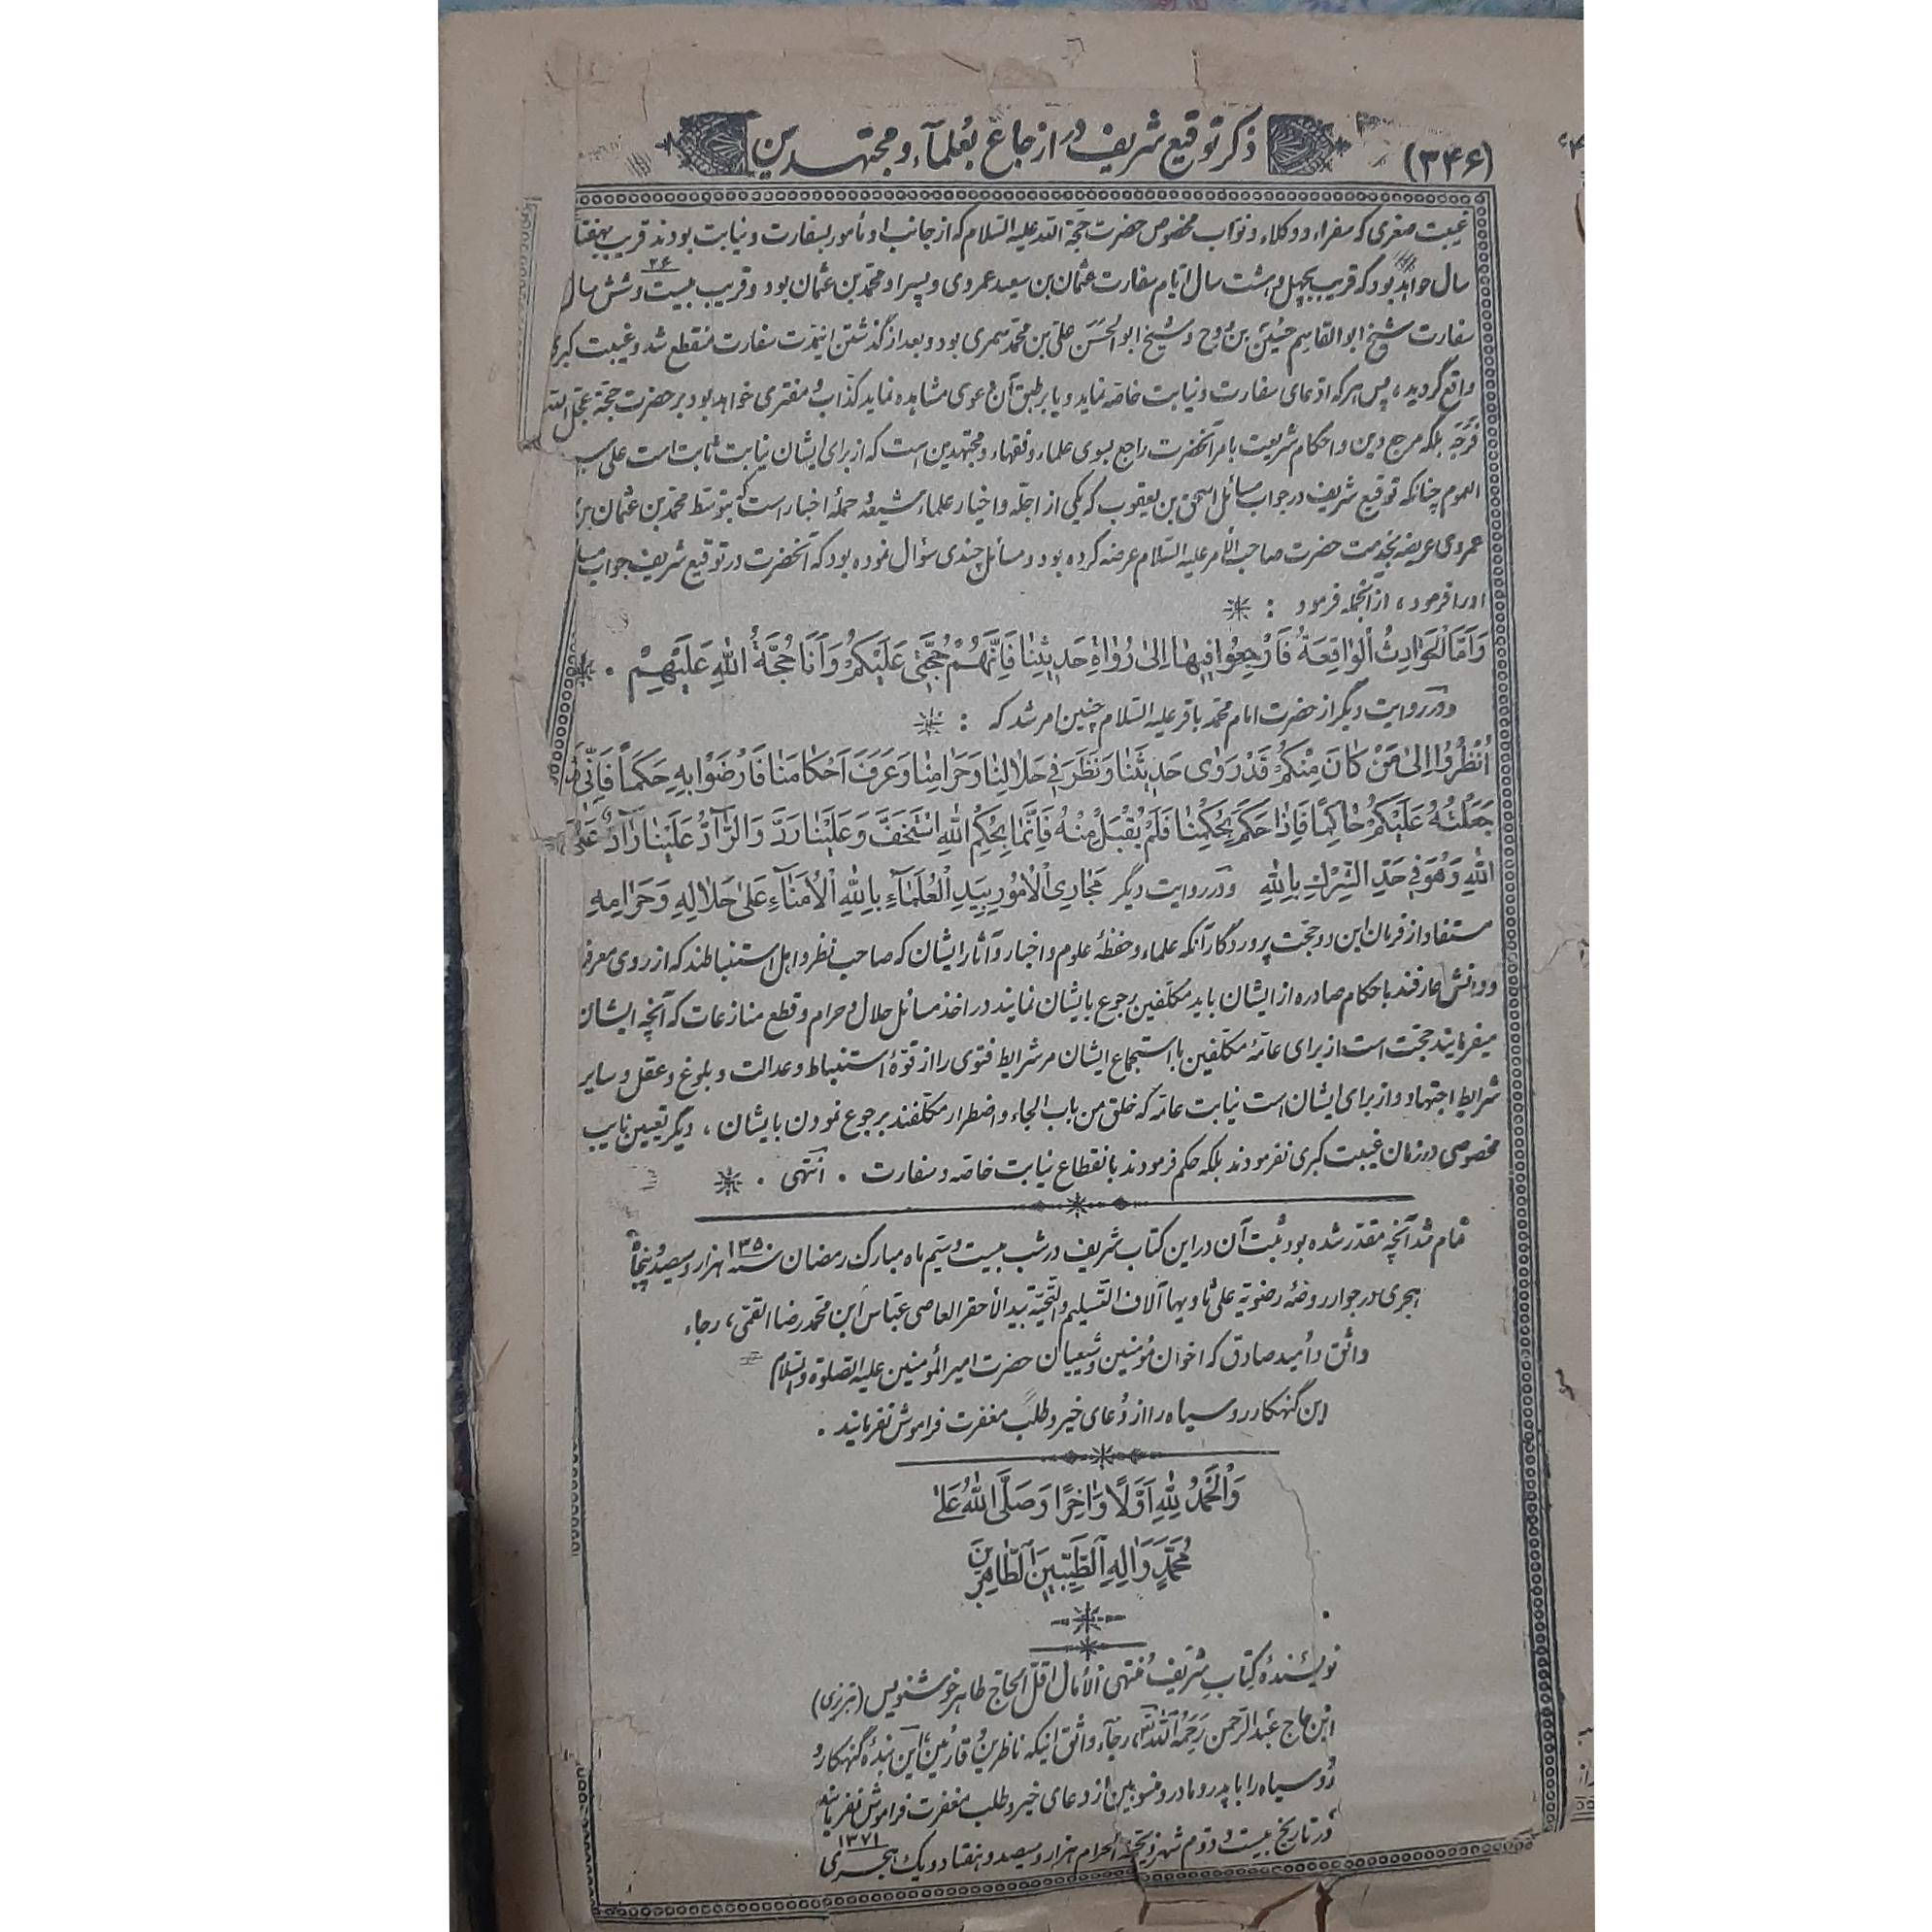 (۳۴۶) ذکر توقیع شریف در ارجاع بعلمآء و مجتهدین
غیبت صغری که سفراء و وکلاء و نوّاب مخصوص حضرت حجة الله علیه السلام که از جانب او مأمور بسفارت و نیابت بودند قریب بهفتاد
سال خواهد بود که قریب بچهل و هشت سال ایّام سفارت عثمان بن سعید عمروی و پسر او محمد بن عثمان بود و قریب بیست و شش سال
۲۶
سفارت شیخ ابو القاسم حسین بن روح و شیخ ابو الحسن علی بن محمد سمری بود و بعد از گذشتن اینمدت سفارت منقطع شد و غیبت کبری
واقع گردید، پس هر که ادعای سفارت و نیابت خاصّه نماید و یا بر طبق آن دعوی مشاهده نماید کذّاب و مفتری خواهد بود بر حضرت حجة عجل الله
فرجه بلکه مرجع دین و احکام شریعت بامر آنحضرت راجع بسوی علماء و فقهاء و مجتهدین است که از برای ایشان نیابت ثابت است علی سبیل
العموم چنانکه توقیع شریف در جواب مسائل اسحق بن یعقوب که یکی از اجلّه و اخیار علماء شیعه و حملۀ اخبار است که بتوسّط محمد بن عثمان بن
عمروی عریضه بخدمت حضرت صاحب الأمر علیه السّلام عرضه کرده بود و مسائل چندی سؤال نموده بود که آنحضرت در توقیع شریف جواب
او را فرمود، از آنجمله فرمود :
وَاَمَّا الْحَوادِثُ الْواقِعَةُ فَارْجِعُوا فیها اِلی رُواةِ حَدیثِنا فَاِنَّهُمْ حُجَّتی عَلَیْکُمْ وَاَنَا حُجَّةُ اللهِ عَلَیْهِمْ .
و در روایت دیگر از حضرت امام محمد باقر علیه السلام چنین امر شد که :
اُنْظُرُوا اِلی مَنْ کانَ مِنْکُمْ قَدْ رَوی حَدیثَنا وَنَظَرَ فی حَلالِنا وَحَرامِنا وَعَرَفَ اَحْکامَنا فَارْضَوْا بِهِ حَکَماً فَاِنّی قَدْ
جَعَلْتُهُ عَلَیْکُمْ حاکِمًا فَاِذا حَکَمَ بِحُکْمِنا فَلَمْ یُقْبَلْ مِنْهُ فَاِنَّما بِحُکْمِ اللهِ اسْتَخَفَّ وَعَلَیْنا رَدَّ وَالرّآدُّ عَلَیْنا رآدٌّ عَلَی
اللهِ وَهُوَ فی حَدِّ الشِّرْكِ بِاللهِ و در روایت دیگر مَجارِی الْاُمُورِ بِیَدِ الْعُلَمآءِ بِاللهِ الْاُمَنآءِ عَلی حَلالِهِ وَحَرامِهِ
مستفاد از فرمان این دو حجت پروردگار آنکه علماء و حفظۀ علوم و اخبار و آثار ایشان که صاحب نظر و اهل استنباطند که از روی معرفت
و دانش عارفند باحکام صادره از ایشان باید مکلّفین رجوع بایشان نمایند در اخذ مسائل حلال و حرام و قطع منازعات که آنچه ایشان
میفرمایند حجت است از برای عامّۀ مکلفین با استجماع ایشان مر شرایط فتوی را از قوّۀ استنباط و عدالت و بلوغ و عقل و سایر
شرایط اجتهاد و از برای ایشان است نیابت عامّه که خلق من باب الجاء و اضطرار مکلفند برجوع نمودن بایشان، دیگر تعیین نایب
مخصوصی در زمان غیبت کبری نفرمودند بلکه حکم فرمودند بانقطاع نیابت خاصّه و سفارت . انتهی .
تمام شد آنچه مقدّر شده بود ثبت آن در این کتاب شریف در شب بیست و سیّم ماه مبارک رمضان سنه ۱۳۵۰ هزار و سیصد و پنجاه
هجری در جوار روضۀ رضویّه علی ثاویها آلاف التسلیم و التحیّة بید الأحقر العاصی عبّاس ابن محمد رضا القمی، رجاء
واثق و امید صادق که اخوان مؤمنین و شیعیان حضرت امیر المؤمنین علیه الصلوة و السلام
این گنهکار رو سیاه را از دعای خیر و طلب مغفرت فراموش نفرمایند .
وَالْحَمْدُ لِلّٰهِ اَوَّلًا وَاٰخِرًا وَصَلَّی اللهُ عَلیٰ
مُحَمَّدٍ وَاٰلِهِ الطَّیِّبینَ الطّاهِرینَ
نویسندۀ کتاب شریف منتهی الآمال اقلّ الحاج طاهر خوشنویس (تبریزی)
ابن حاج عبد الرحمن رحمه الله، رجآء واثق اینکه ناظرین و قارئین، این بندۀ گنهکار و
رو سیاه را با پدر و مادر و منسوبین از دعای خیر و طلب مغفرت فراموش نفرمایند
در تاریخ بیست و دوّم شهر ذیحجة الحرام هزار و سیصد و هفتاد و یک هجری
۱۳۷۱